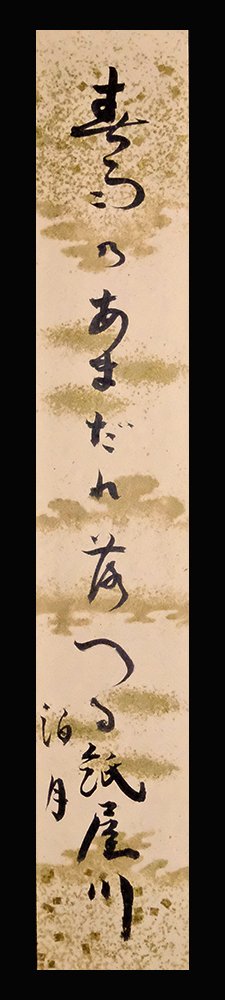 春雨のあまだれ落つる紙屋川
泊月